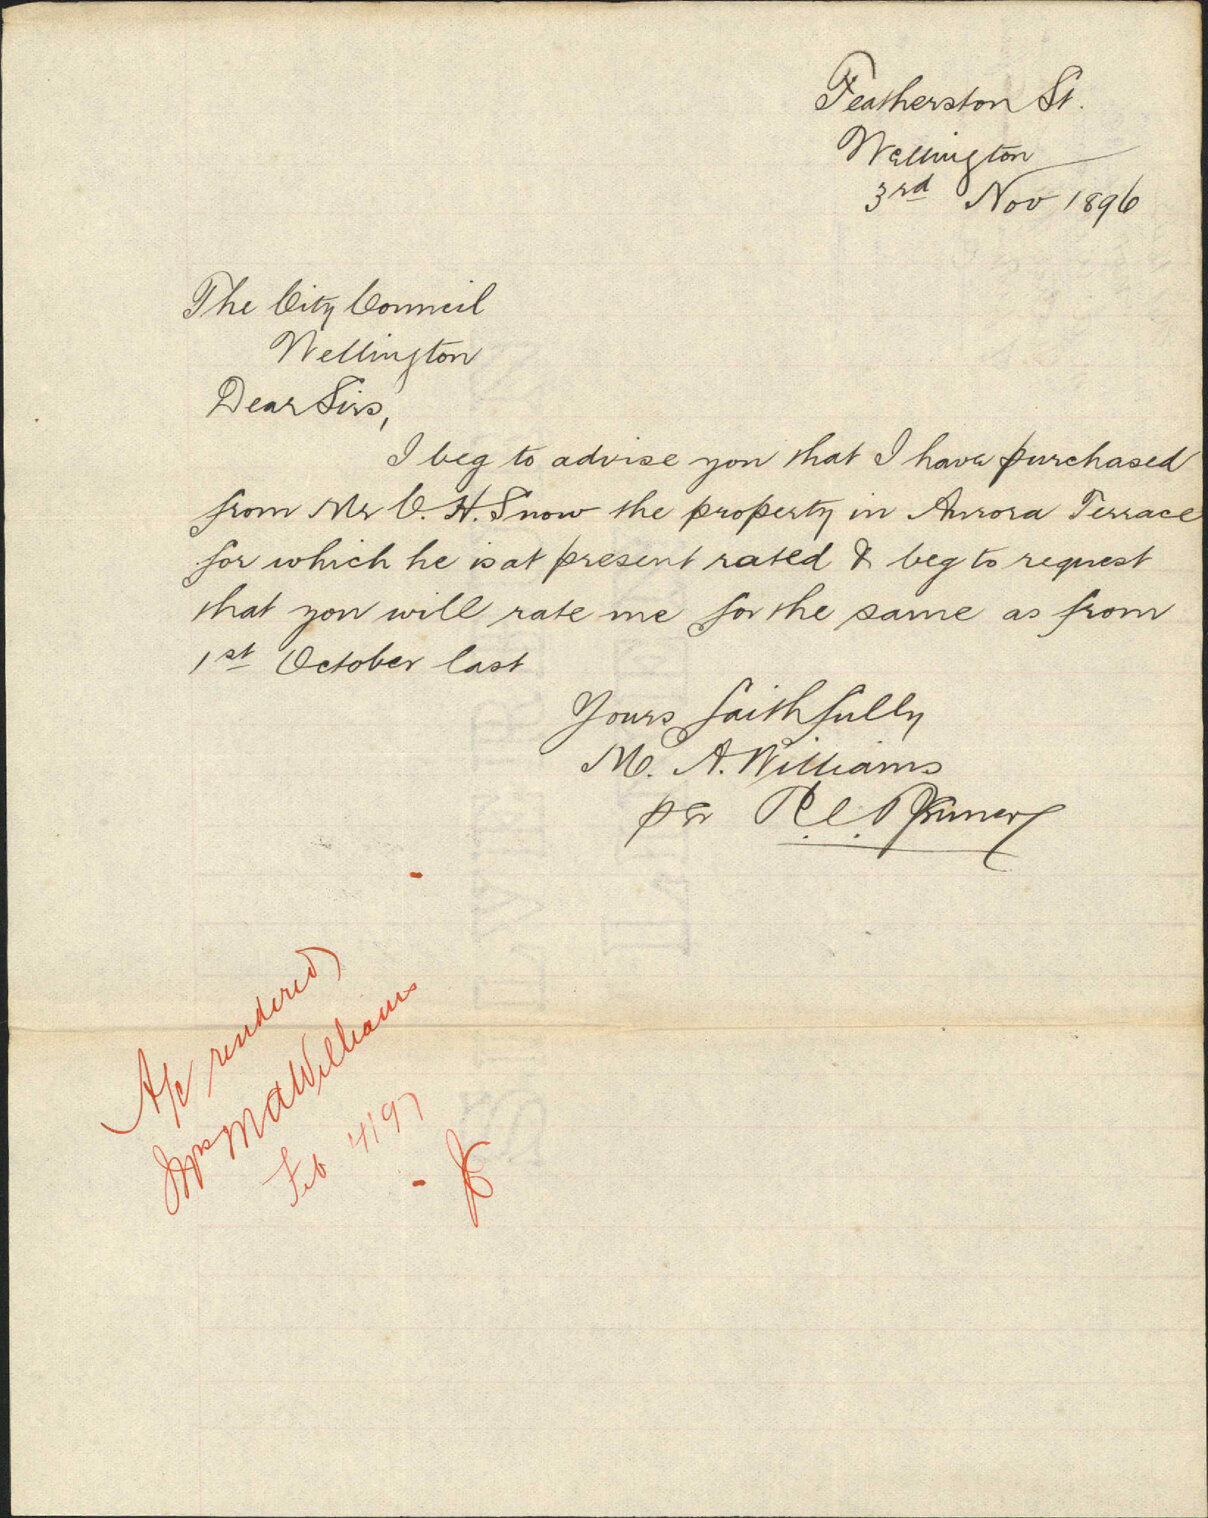 Featherston St.
Wellington
3rd Nov 1896
The City Council
Wellington
Dear Sirs,
I beg to advise you that I have purchased
from Mr C. H. Snow the property in Aurora Terrace
for which he is at present rated & beg to request
that you will rate me for the same as from
1st October last
Yours faithfully
M. A. Williams
per R. C.
A/c rendered
Mrs M A Williams
Feb 4/97